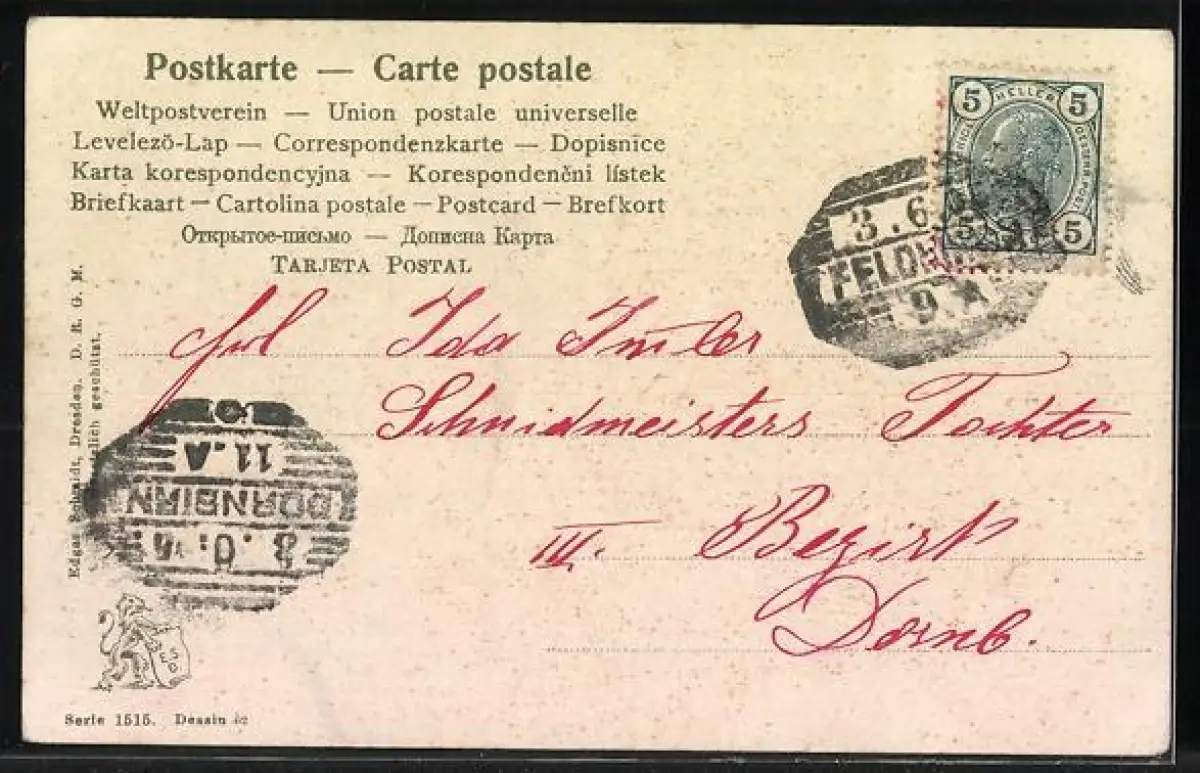 Postkarte — Carte postale
Weltpostverein — Union postale universelle
Levelező-Lap — Correspondenzkarte — Dopisnice
Karta korespondencyjna — Korespondenčni lístek
Briefkaart — Cartolina postale — Postcard — Brefkort
Открытое-письмо — Дописна Карта
TARJETA POSTAL
5 HELLER 5
5 5
3.6
FELDK
9.
Frl Ida Imler
Schmidmeisters Tochter
III. Bezirk
Dornb.
11.A
DORNBIRN
Schmidt, Dresden. D. R. G. M.
geschützt.
SED
Serie 1515. Dessin